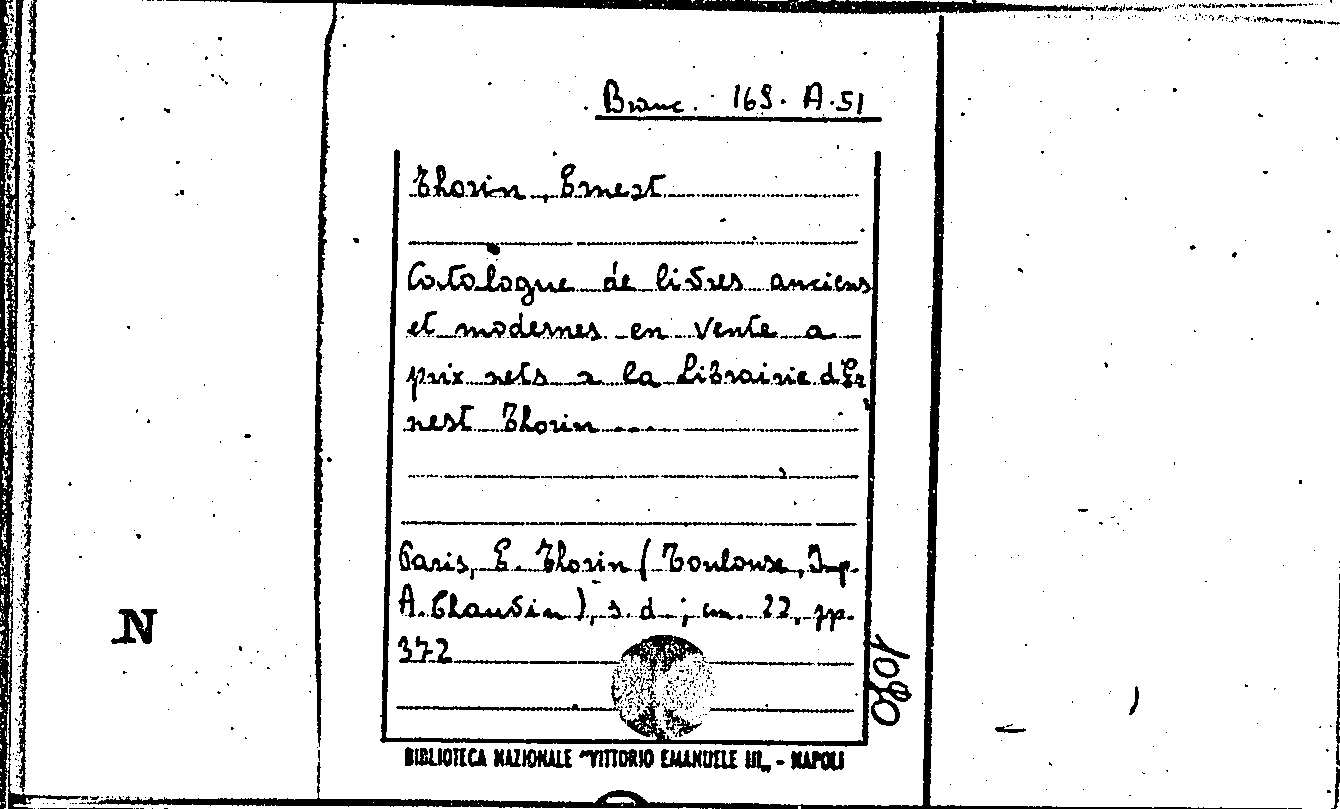 Branc. 169. A. 51
Thorin, Ernest
Catalogue de livres anciens
et modernes en vente a
prix nets a la Librairie d'Er
nest Thorin ...
Paris, E. Thorin (Toulouse, Imp.
A. Chauvin), s. d.; cm. 22, pp.
372
N
1080
BIBLIOTECA NAZIONALE "VITTORIO EMANUELE III„ - NAPOLI